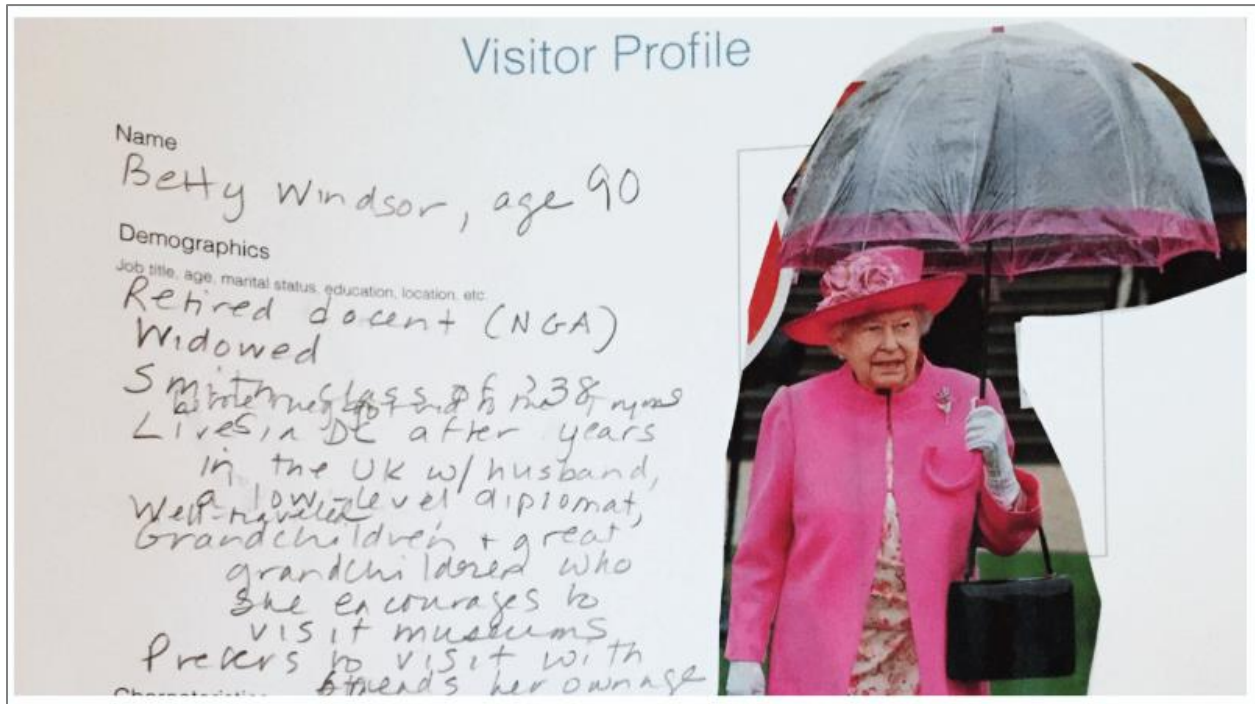 Visitor Profile
Name
Betty Windsor, age 90
Demographics
Job title, age, marital status, education, location, etc.
Retired docent (NGA)
Widowed
Smith class of '38
Lives in DC after years
in the UK w/ husband,
a low-level diplomat,
Well-traveled
Grandchildren + great
grandchildren who
she encourages to
visit museums
Prefers to visit with
friends her own age
Characteristics